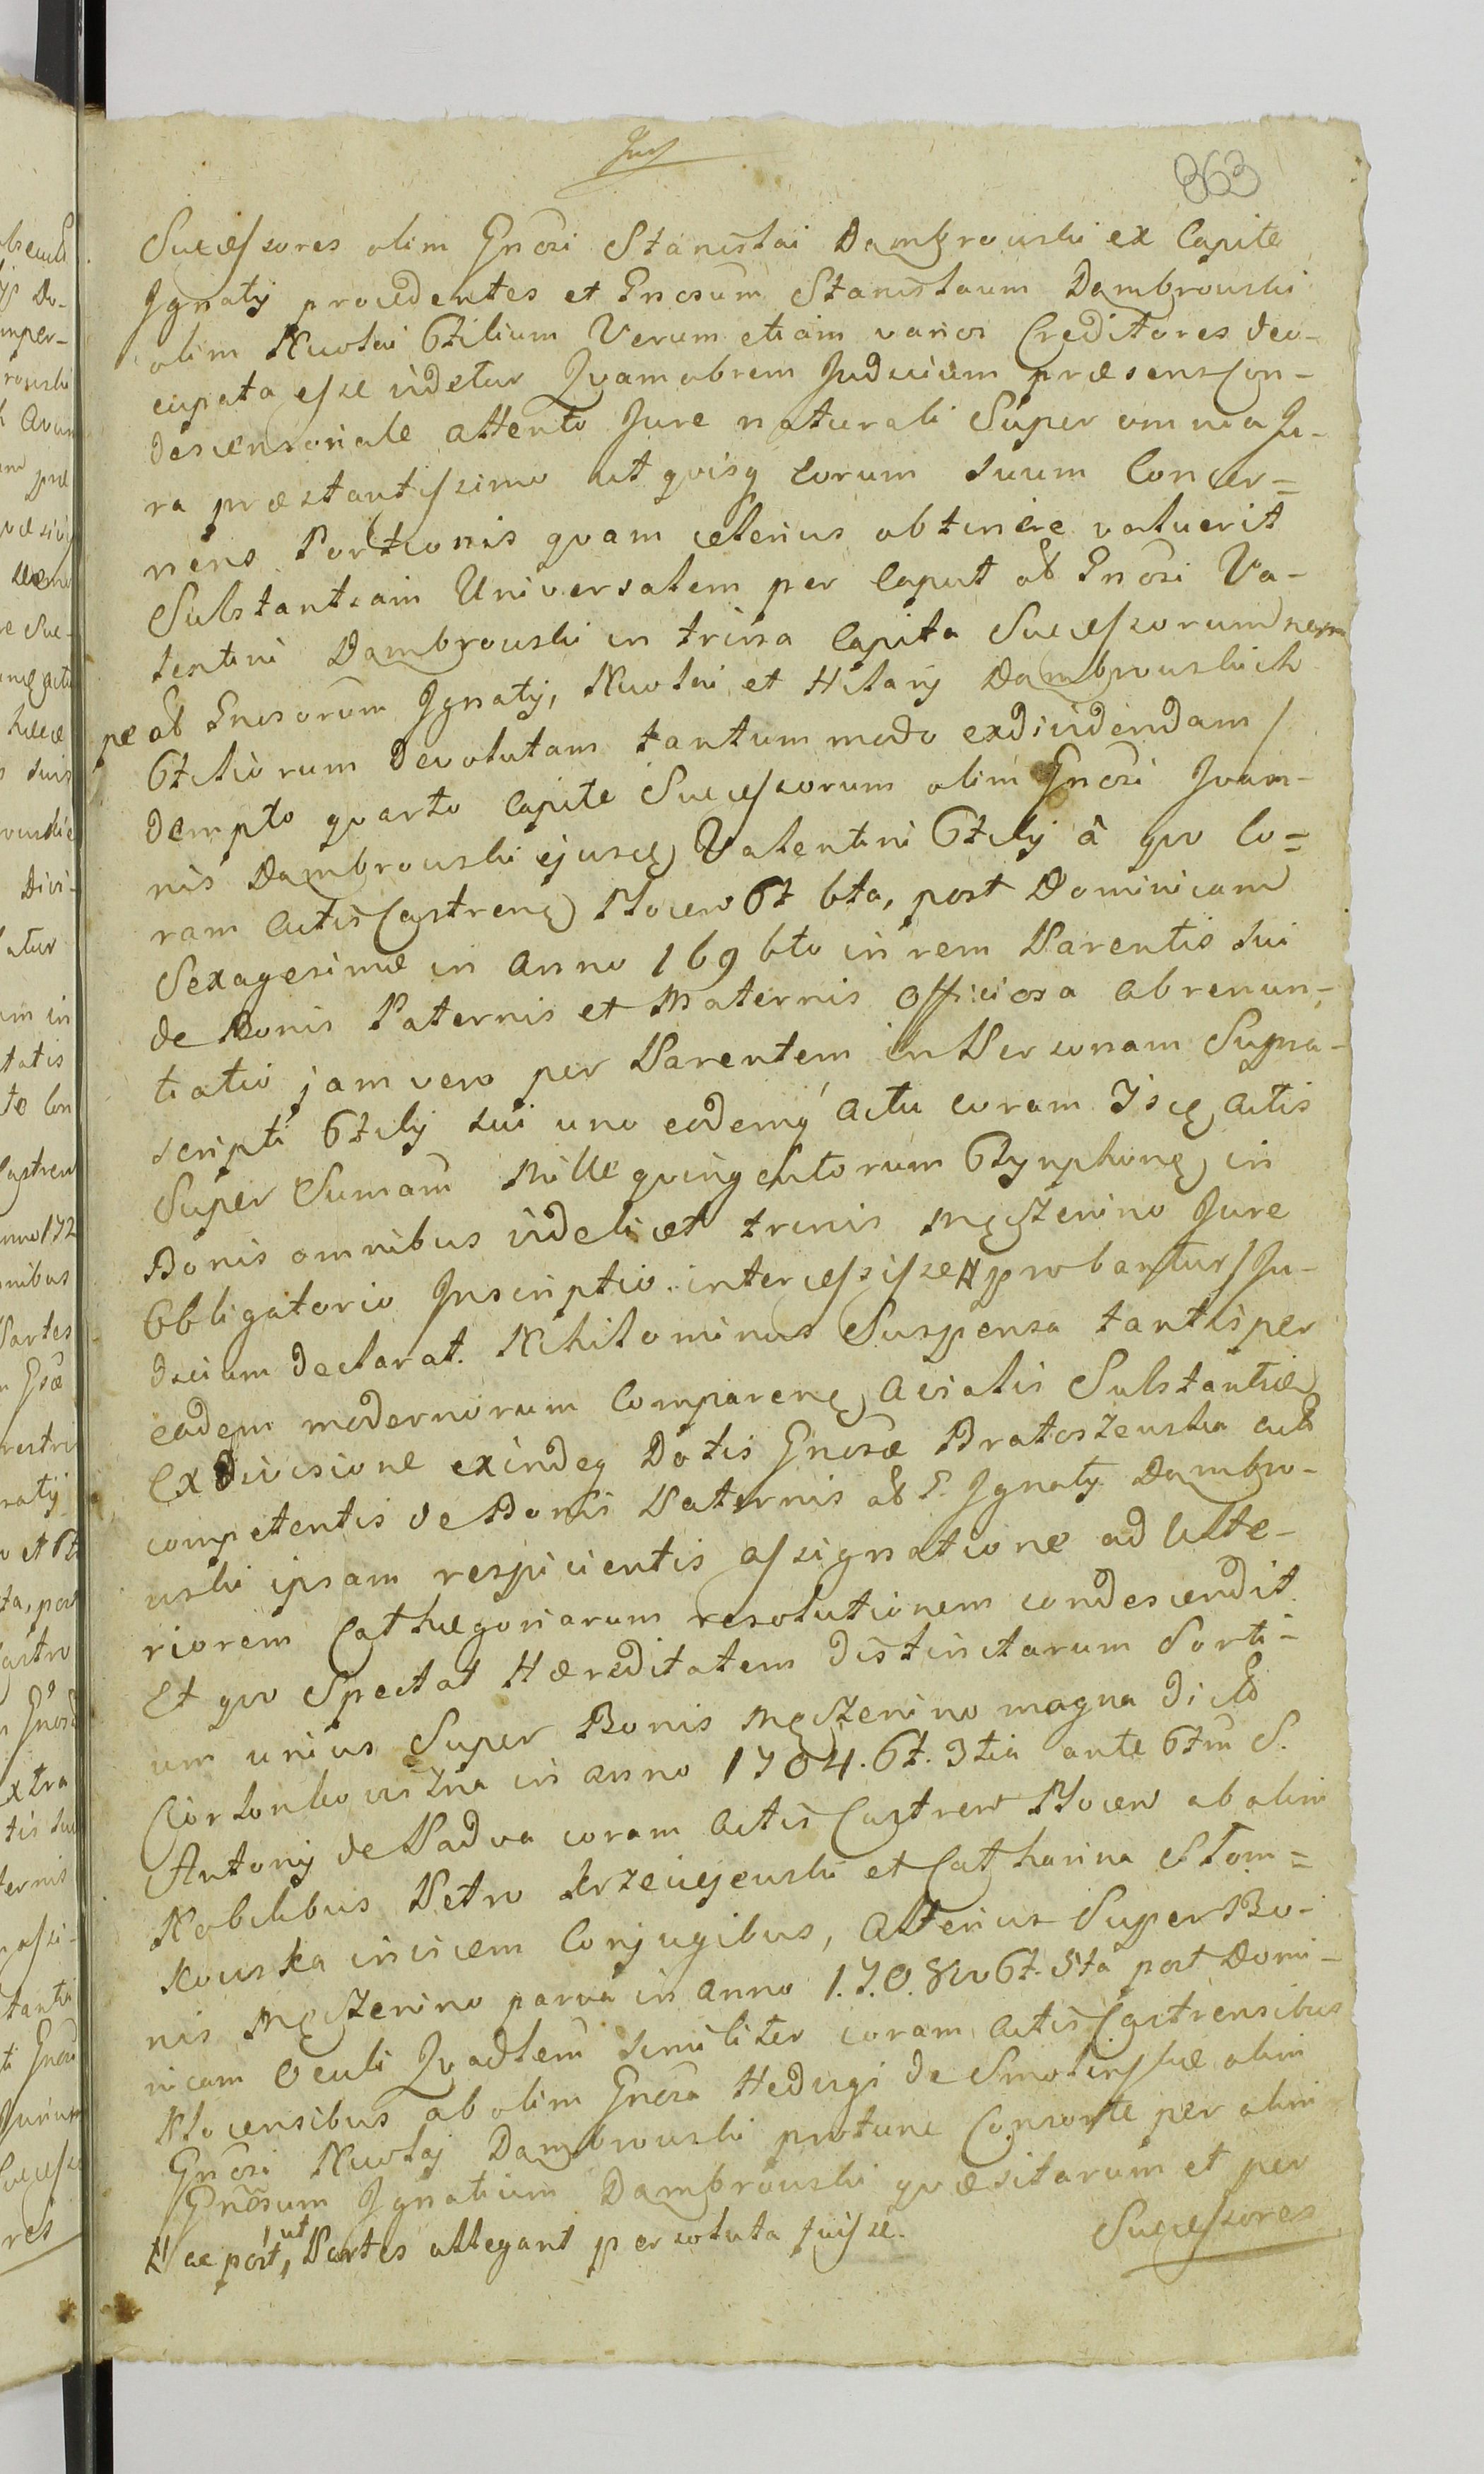 863
Successores olim Gnosi Stanislai Dambrowski ex Capite
Ignatij procedentes et Gnosum Stanislaum Dambrowski
olim Nicolai Filium Verum etiam varios Creditores deo-
cupata esse videtur Quamobrem Judicium præsens Con-
descensoriale attento Jure naturali Super omnia Ju-
ra præstantissimo ut quisq eorum suum Concer=
nens Portionis quam celerius obtinere valuerit
Substantiam Universalem per Caput ab Gnosi Va-
lentini Dambrowski in trina Capita Successorum nem
pe ab Gnosorum Ignatij, Nicolai et Hilarij Dambrowskich
Filiorum devolutam tantummodo exdividendam /
dempto quarto Capite Successorum olim Gnosi Joan-
nis Dambrowski ejusq Valentini Filij â quo Co=
ram Actis Castren Plocen F 6ta, post Dominicam
Sexagesimæ in Anno 1696to in rem Parentis sui
de Bonis Paternis et Maternis Officiosa abrenun-
tiatio jam vero per Parentem in Personam Supra-
scripti Filij sui uno eodemq Actu coram Iisq Actis
Super Sumam Mille quingentorum Tynphonq in
Bonis omnibus videlicet trinis Męczenino Jure
Obligatorio Inscriptio intercessisse # probantur / Ju-
dicium declarat. Nihilominus Suspensa tantisper
eadem modernorum Comparenq Avialis Substantiæ
Exdivisione exindeq Dotis Gnosæ Bratoszewska
competentis de Bonis Paternis ab G. Ignatij Dambro-
wski ipsam respicientis assignatione ad Ulte-
riorem Cathegoriarum resolutionem condescendit.
Et quo Spectat Hæreditatem distinctarum Sorti-
um unius Super Bonis Męczenino magna dicto
Ciorkonkowizna in anno 1704. F. 3tia ante Ftm S.
Antonij de Padua coram Actis Castren Plocen ab olim
Nobilibus Petro Krzeciejewski et Catharina Stom=
kowska invicem Conjugibus, Alterius Super Bo-
nis Męczenino parva in Anno 1.7.0.8vo F. 5ta post Domi-
nicam Oculi Quadlem similiter coram Actis Castrensibus
Plocensibus ab olim Gnosa Hedvigi de Smolinskie olim
Gnosi Nicolaj Dambrowski protunc Consorte per olim
Gnosum Ignatium Dambrowski quæsitarum et per
Successores
# ac post, ut Partes allegant persoluta fuisse.